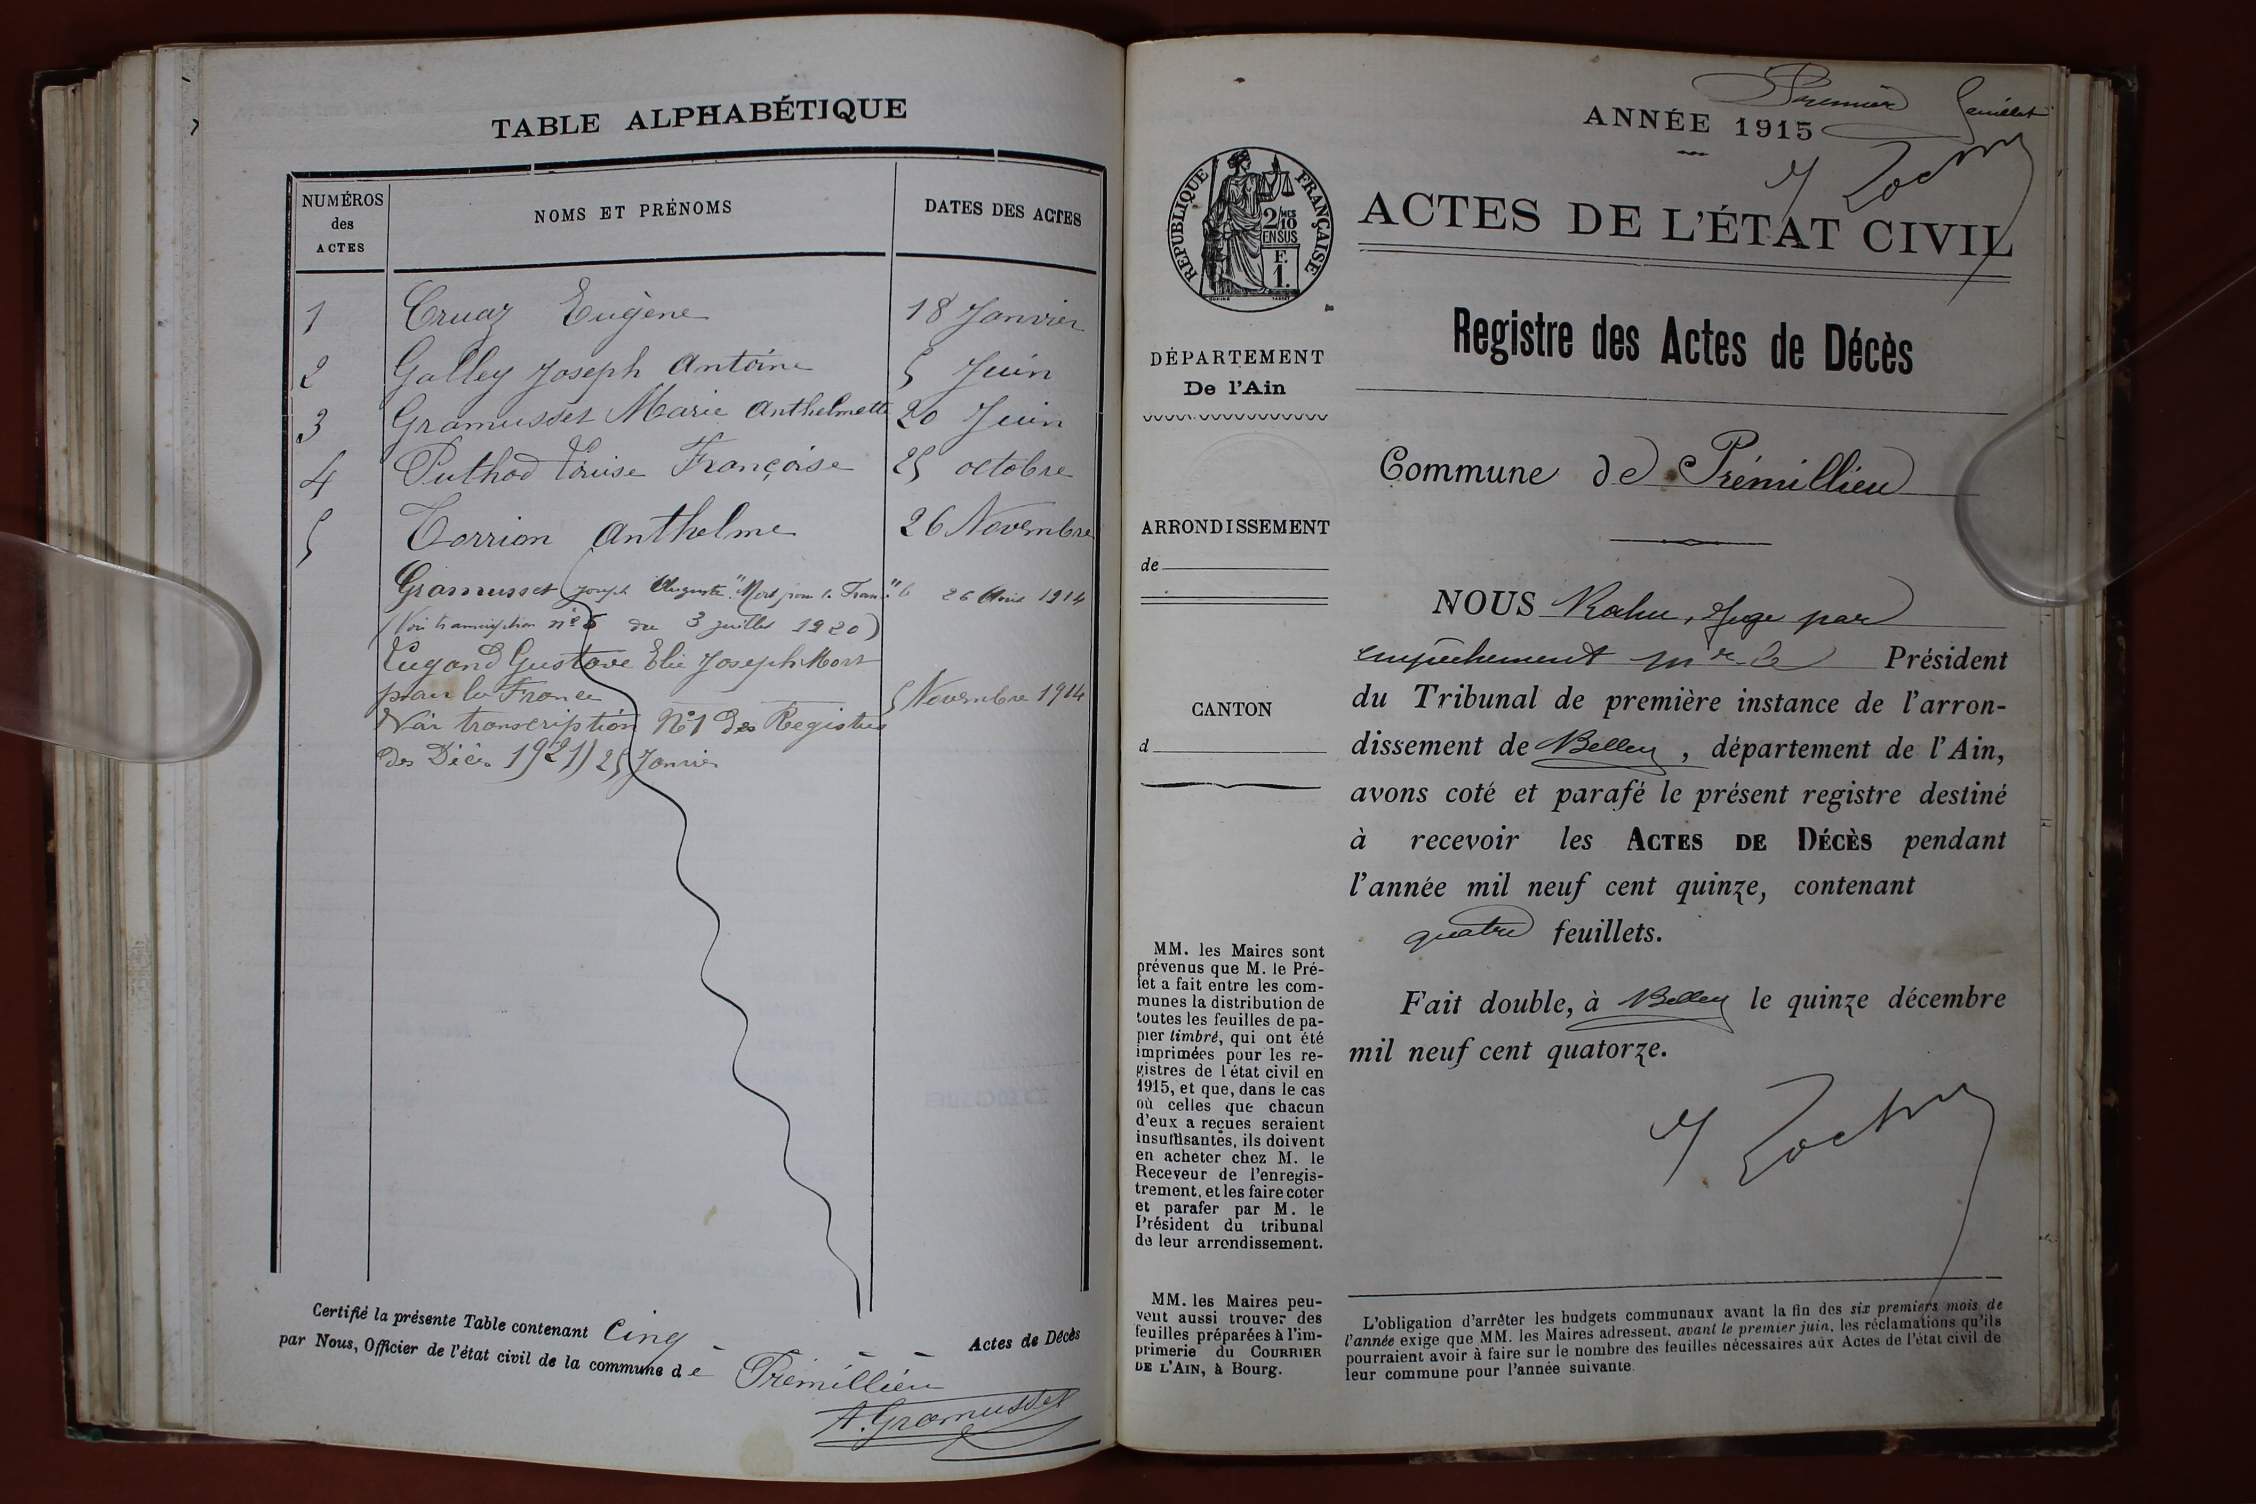 TABLE ALPHABÉTIQUE
NUMÉROS des ACTES
NOMS ET PRÉNOMS
DATES DES ACTES
1 Cruaz Eugène 18 Janvier
2 Galley Joseph Antoine 5 Juin
3 Gramusset Marie Anthelmette 20 Juin
4 Puthod Louise Françoise 25 octobre
5 Torrion Anthelme 26 Novembre
Gramusset Joseph Auguste "Mort pour la France" le 26 Août 1914
(Voir transcription n° du 3 juillet 1920)
Lugand Gustave Elie Joseph Mort
pour la France 5 Novembre 1914
Voir transcription N°1 des Registres
des Décès 1921) 25 Janvier
Certifié la présente Table contenant Cinq Actes de Décès
par Nous, Officier de l'état civil de la commune de Prémillieu
A. Gramusset
Premier feuillet
ANNÉE 1915
ACTES DE L'ÉTAT CIVIL
RÉPUBLIQUE FRANÇAISE
2/10
EN SUS
F.
1.
Registre des Actes de Décès
DÉPARTEMENT
De l'Ain
Commune de Prémillieu
ARRONDISSEMENT
de
CANTON
d
NOUS Juge par
empêchement Mr le Président
du Tribunal de première instance de l'arron-
dissement de Belley, département de l'Ain,
avons coté et parafé le présent registre destiné
à recevoir les ACTES DE DÉCÈS pendant
l'année mil neuf cent quinze, contenant
quatre feuillets.
Fait double, à Belley le quinze décembre
mil neuf cent quatorze.
MM. les Maires sont
prévenus que M. le Pré-
fet a fait entre les com-
munes la distribution de
toutes les feuilles de pa-
pier timbré, qui ont été
imprimées pour les re-
gistres de l'état civil en
1915, et que, dans le cas
où celles que chacun
d'eux a reçues seraient
insuffisantes, ils doivent
en acheter chez M. le
Receveur de l'enregis-
trement, et les faire coter
et parafer par M. le
Président du tribunal
de leur arrondissement.
MM. les Maires peu-
vent aussi trouver des
feuilles préparées à l'im-
primerie du COURRIER
DE L'AIN, à Bourg.
L'obligation d'arrêter les budgets communaux avant la fin des six premiers mois de
l'année exige que MM. les Maires adressent, avant le premier juin, les réclamations qu'ils
pourraient avoir à faire sur le nombre des feuilles nécessaires aux Actes de l'état civil de
leur commune pour l'année suivante.